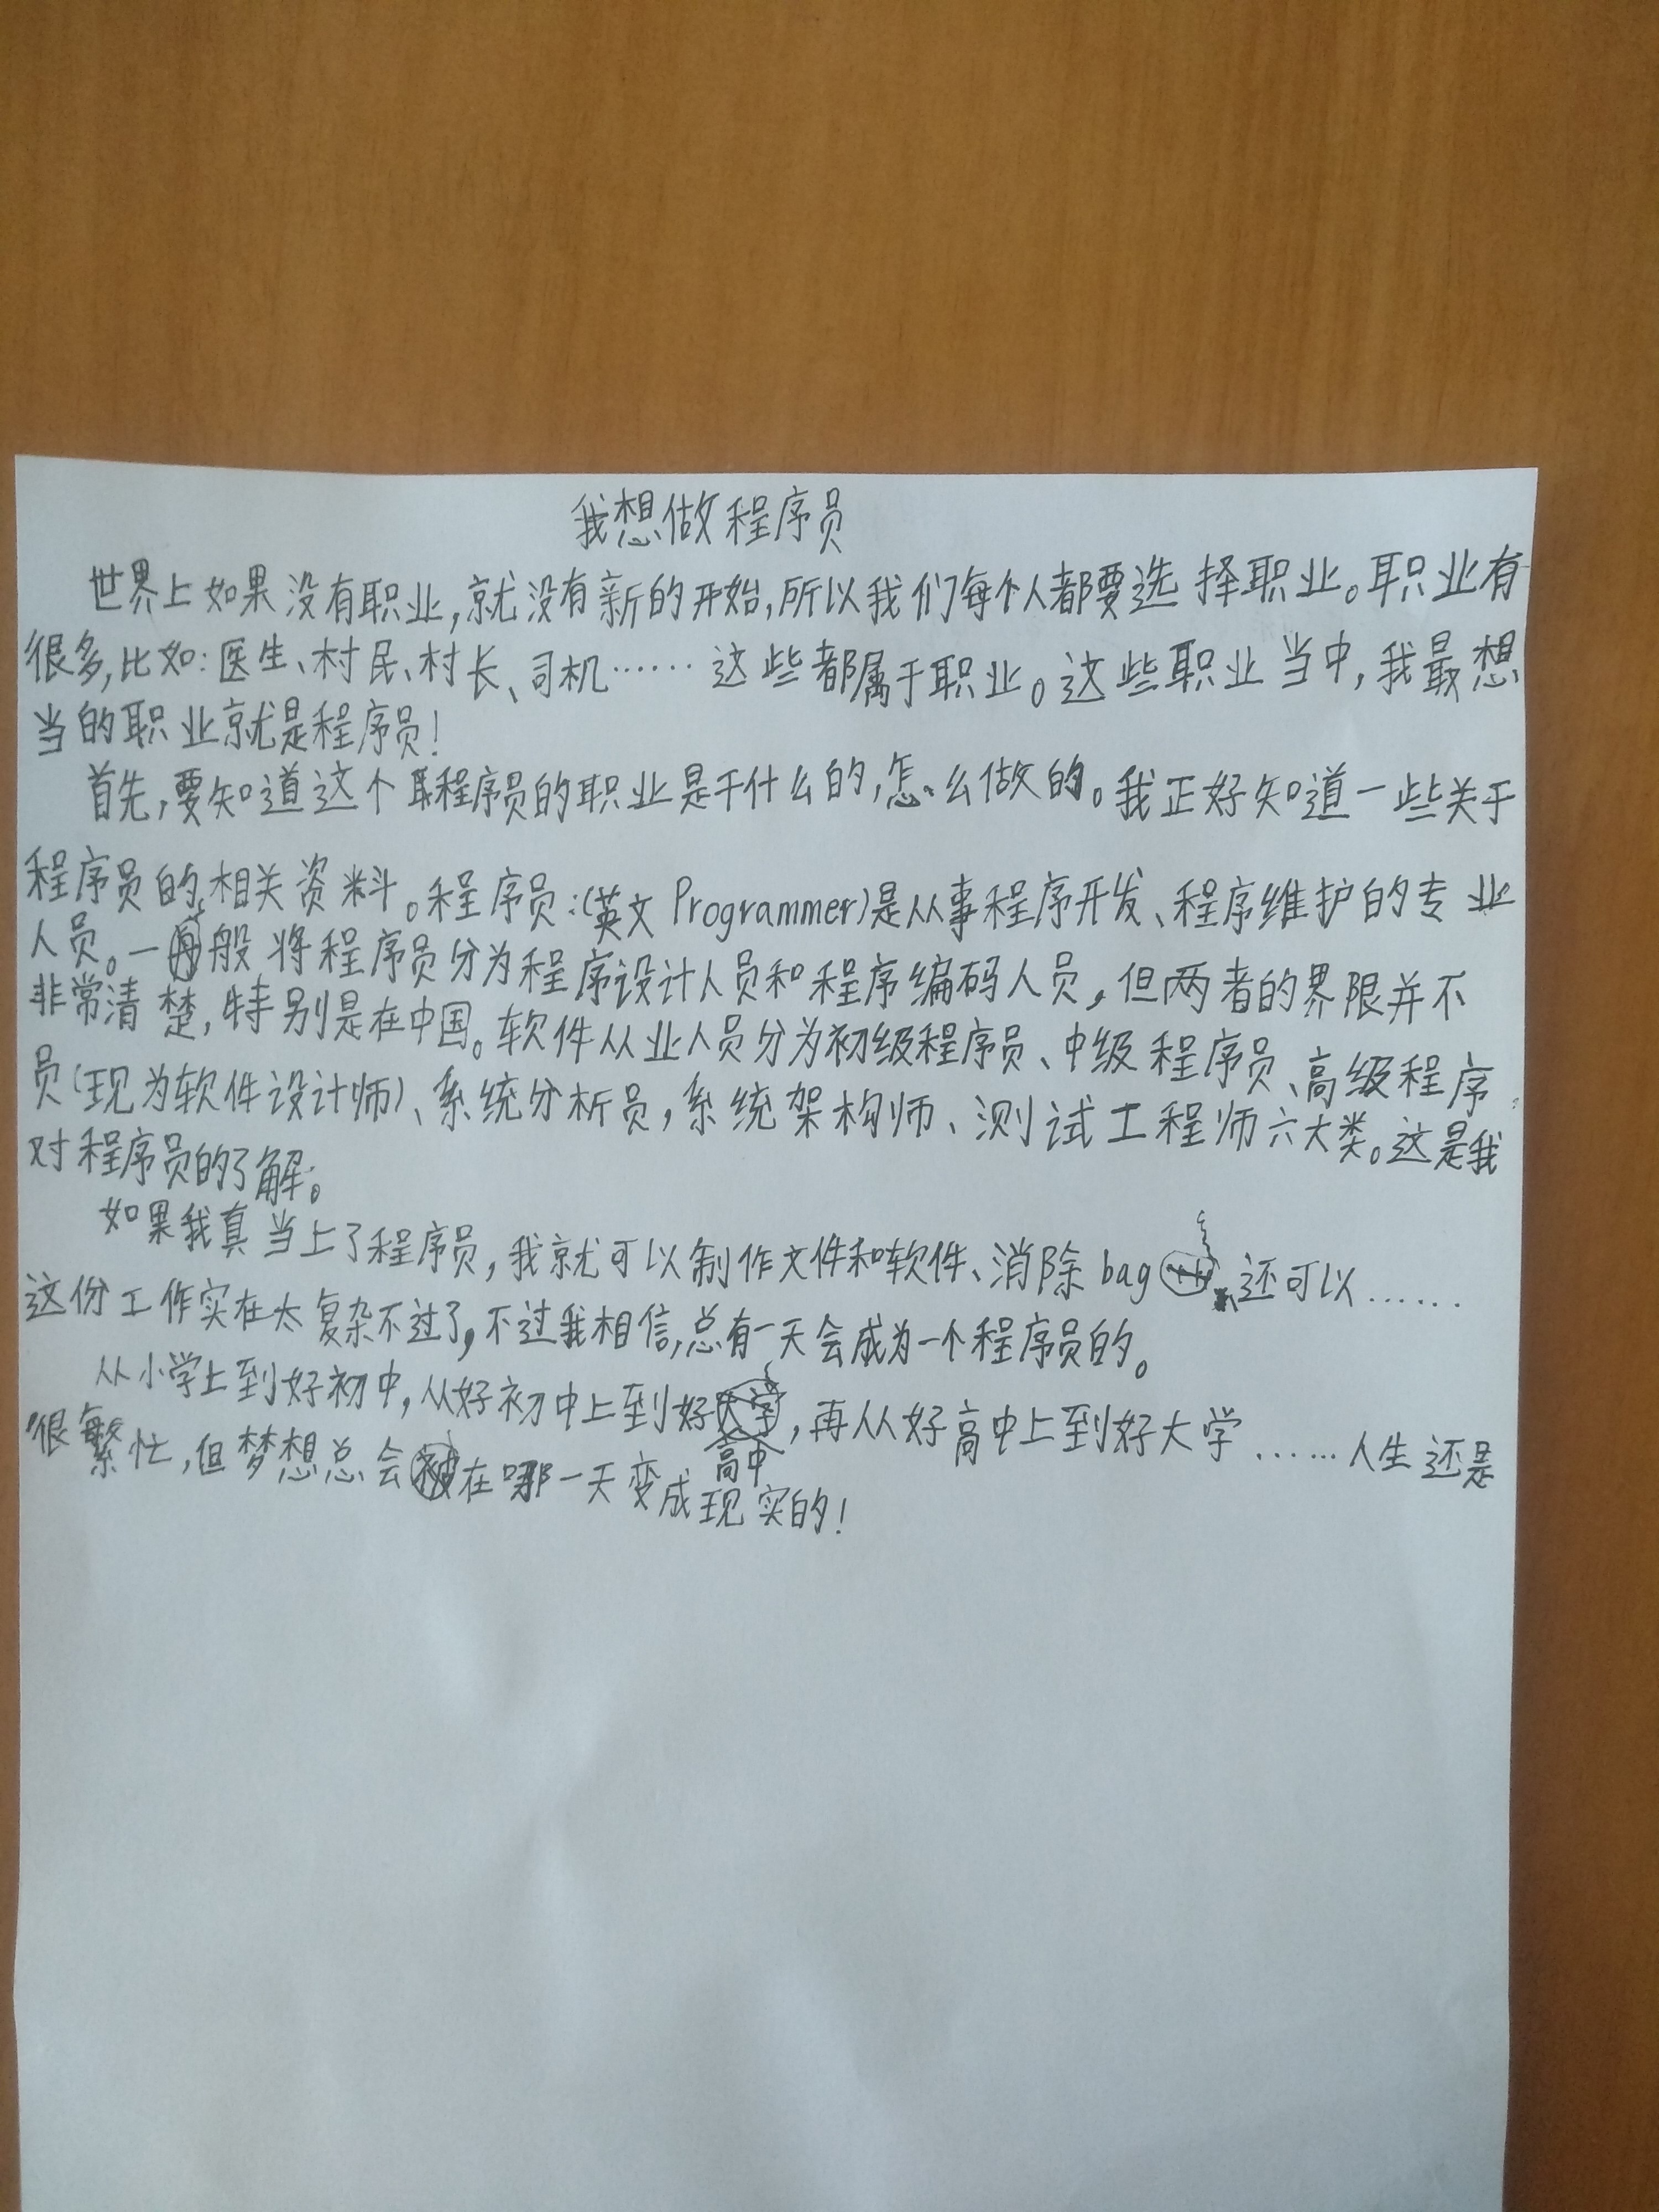 我想做程序员
世界上如果没有职业,就没有新的开始,所以我们每个人都要选择职业。职业有
很多,比如:医生、村民、村长、司机……这些都属于职业。这些职业当中,我最想
当的职业就是程序员!
首先,要知道这个程序员的职业是干什么的,怎么做的。我正好知道一些关于
程序员的相关资料。程序员:(英文Programmer)是从事程序开发、程序维护的专业
人员。一般将程序员分为程序设计人员和程序编码人员,但两者的界限并不
非常清楚,特别是在中国。软件从业人员分为初级程序员、中级程序员、高级程序
员(现为软件设计师)、系统分析员,系统架构师、测试工程师六大类。这是我
对程序员的了解。
如果我真当上了程序员,我就可以制作文件和软件、消除bag还可以……
这份工作实在太复杂不过了,不过我相信,总有一天会成为一个程序员的。
从小学上到好初中,从好初中上到好高中,再从好高中上到好大学……人生还是
很繁忙,但梦想总会在哪一天变成现实的!